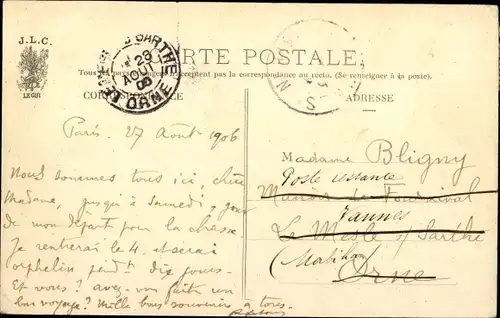 J.L.C.
LE GUI
CARTE POSTALE
Tous les pays étrangers n'acceptent pas la correspondance au recto. (Se renseigner à la poste).
CORRESPONDANCE
ADRESSE
SARTHE
28
AOUT
06
ORNE
Paris. 27 Août 1906
Nous sommes tous ici, chère
Madame, jusqu'à Samedi, jour
de mon départ pour la chasse.
Je rentrerai le 4. et serai
orphelin pendt dix jours.
Et vous? avez-vous fait un
bon voyage? Mille bons souvenirs à tous.
Madame Bligny
Poste restante
Manoir de Fournival
Vannes
Le Mesle s/ Sarthe
(Morbihan)
Orne